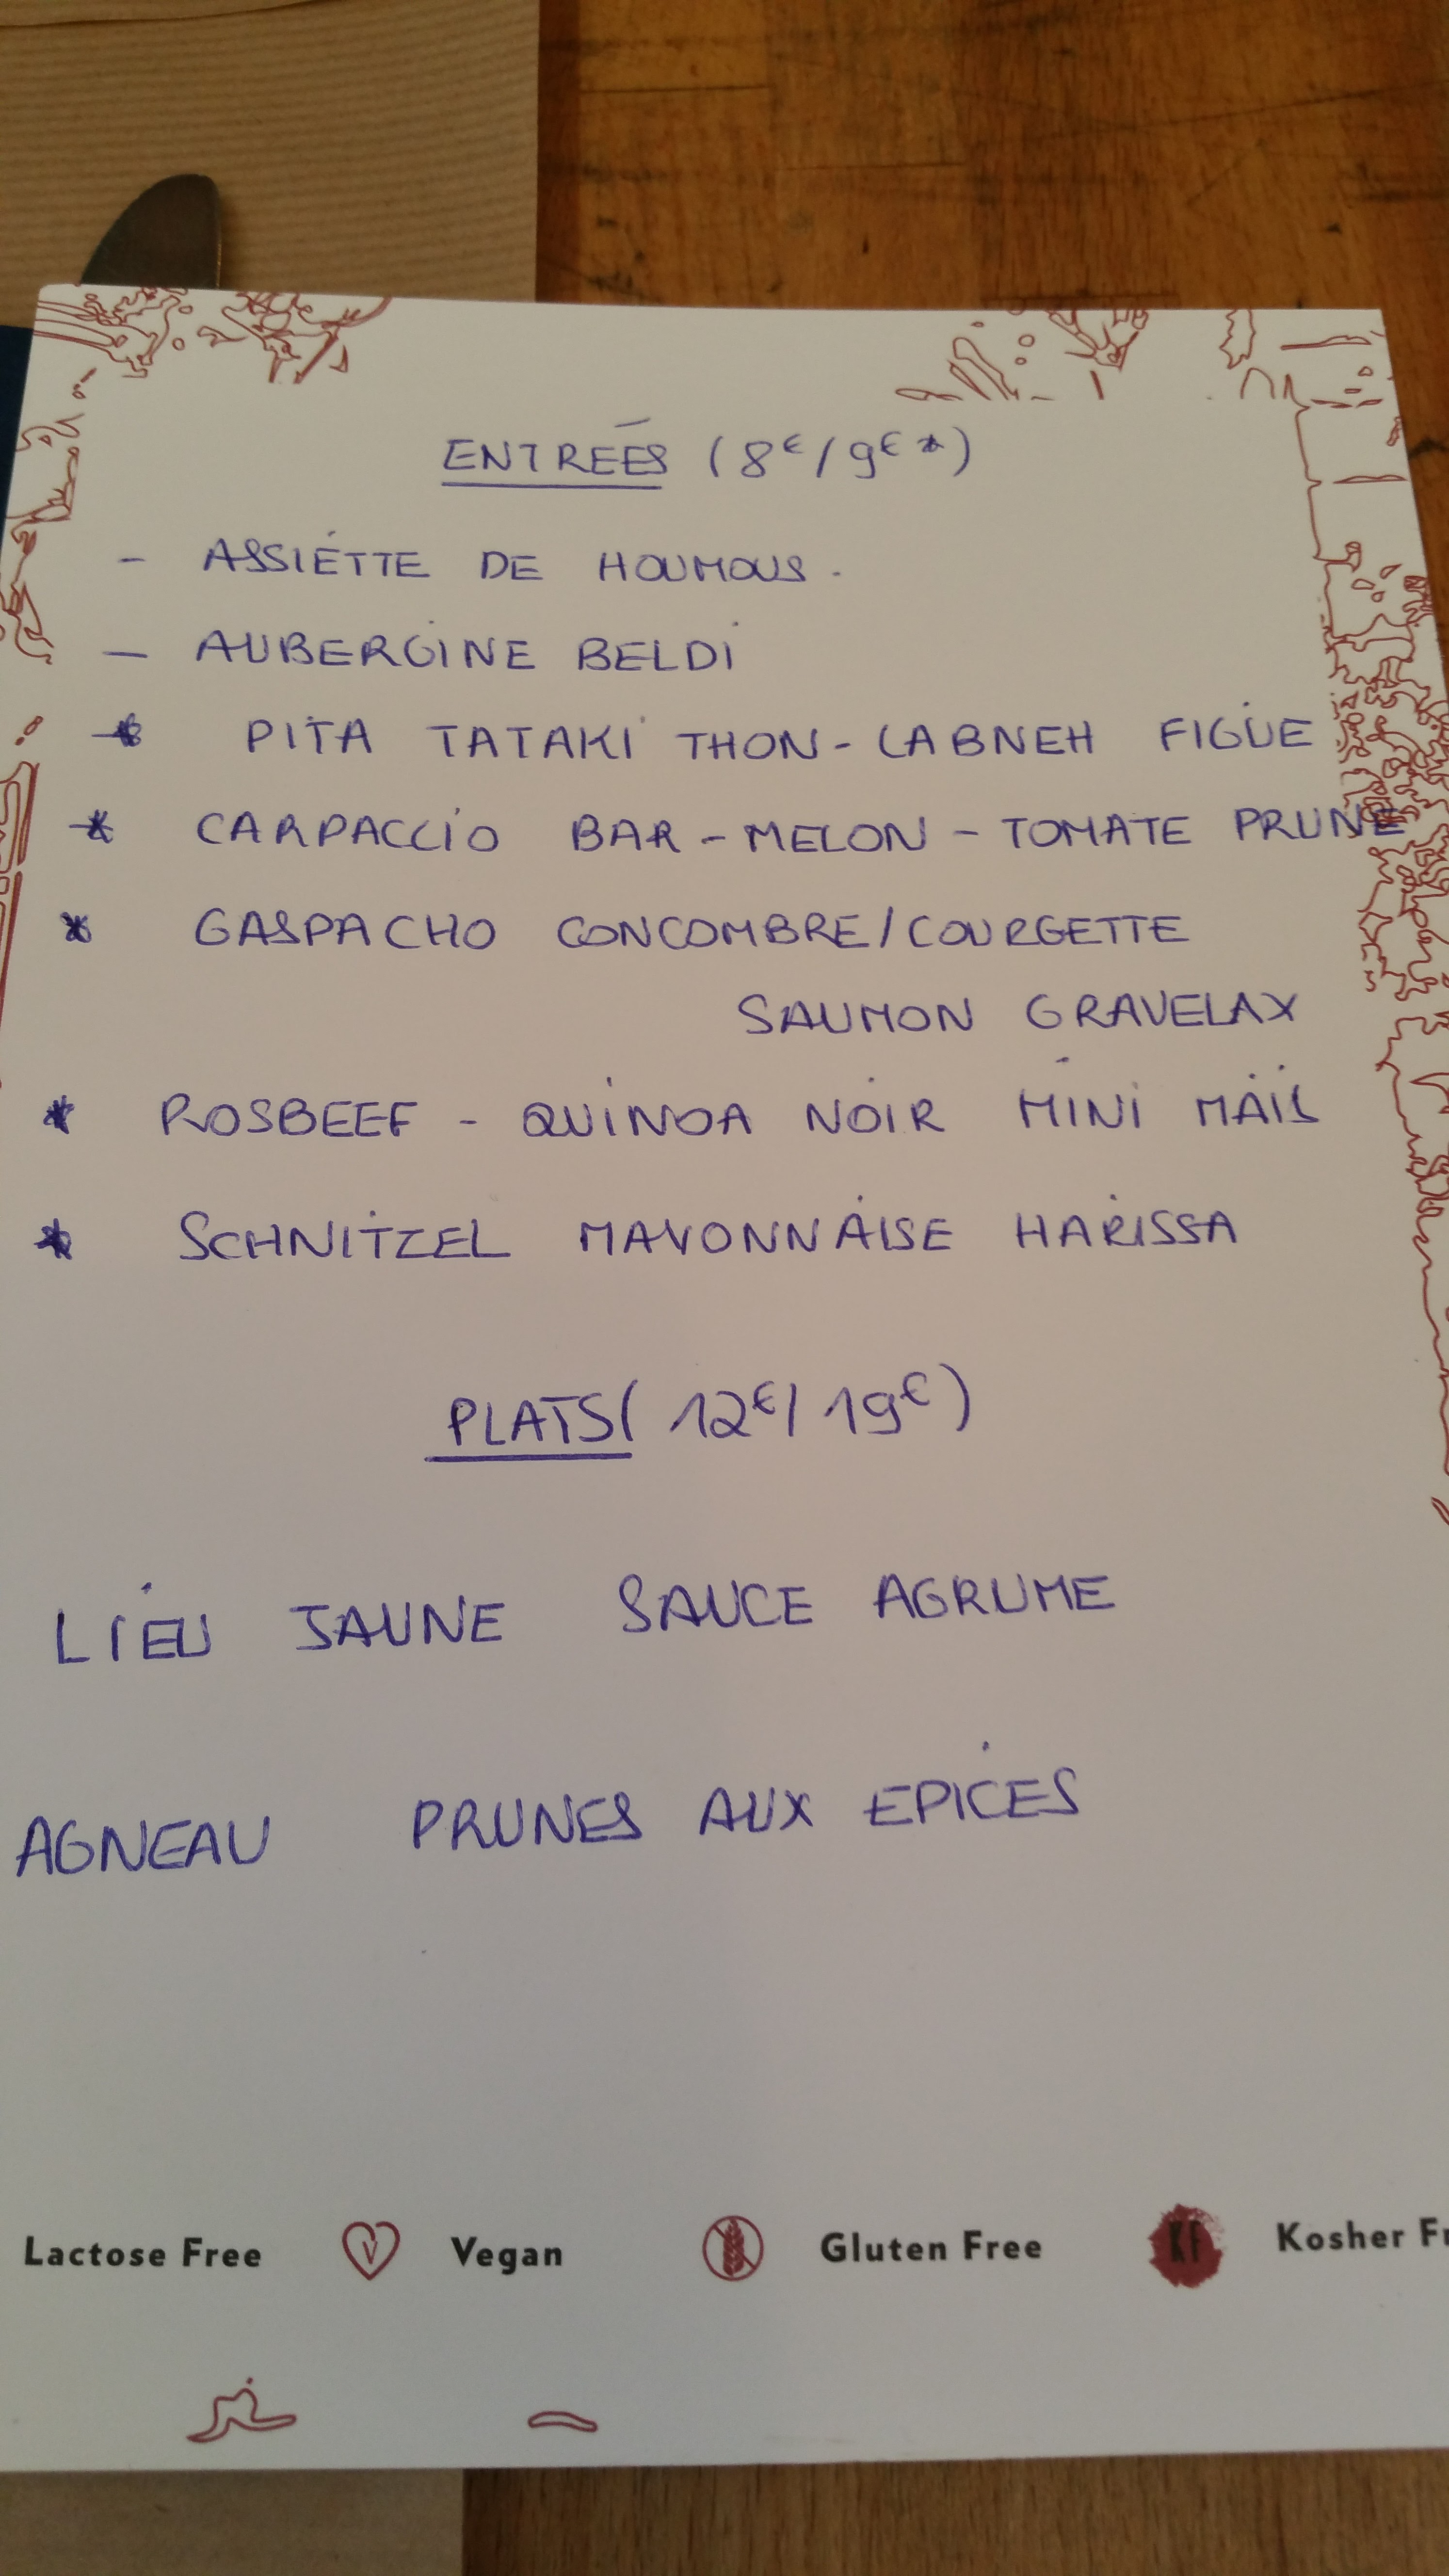 ENTREÉS (8€/9€*)
- ASSIETTE DE HOUMOUS.
- AUBERGINE BELDI
* PITA TATAKI THON - LABNEH FIGUE
* CARPACCIO BAR - MELON - TOMATE PRUNE
* GASPACHO CONCOMBRE/COURGETTE
SAUMON GRAVELAX
* ROSBEEF - QUINOA NOIR MINI MAÏS
* SCHNITZEL MAYONNAISE HARISSA
PLATS (12€/19€)
LIEU JAUNE SAUCE AGRUME
AGNEAU PRUNES AUX EPICES
Lactose Free V Vegan Gluten Free KF Kosher Fr